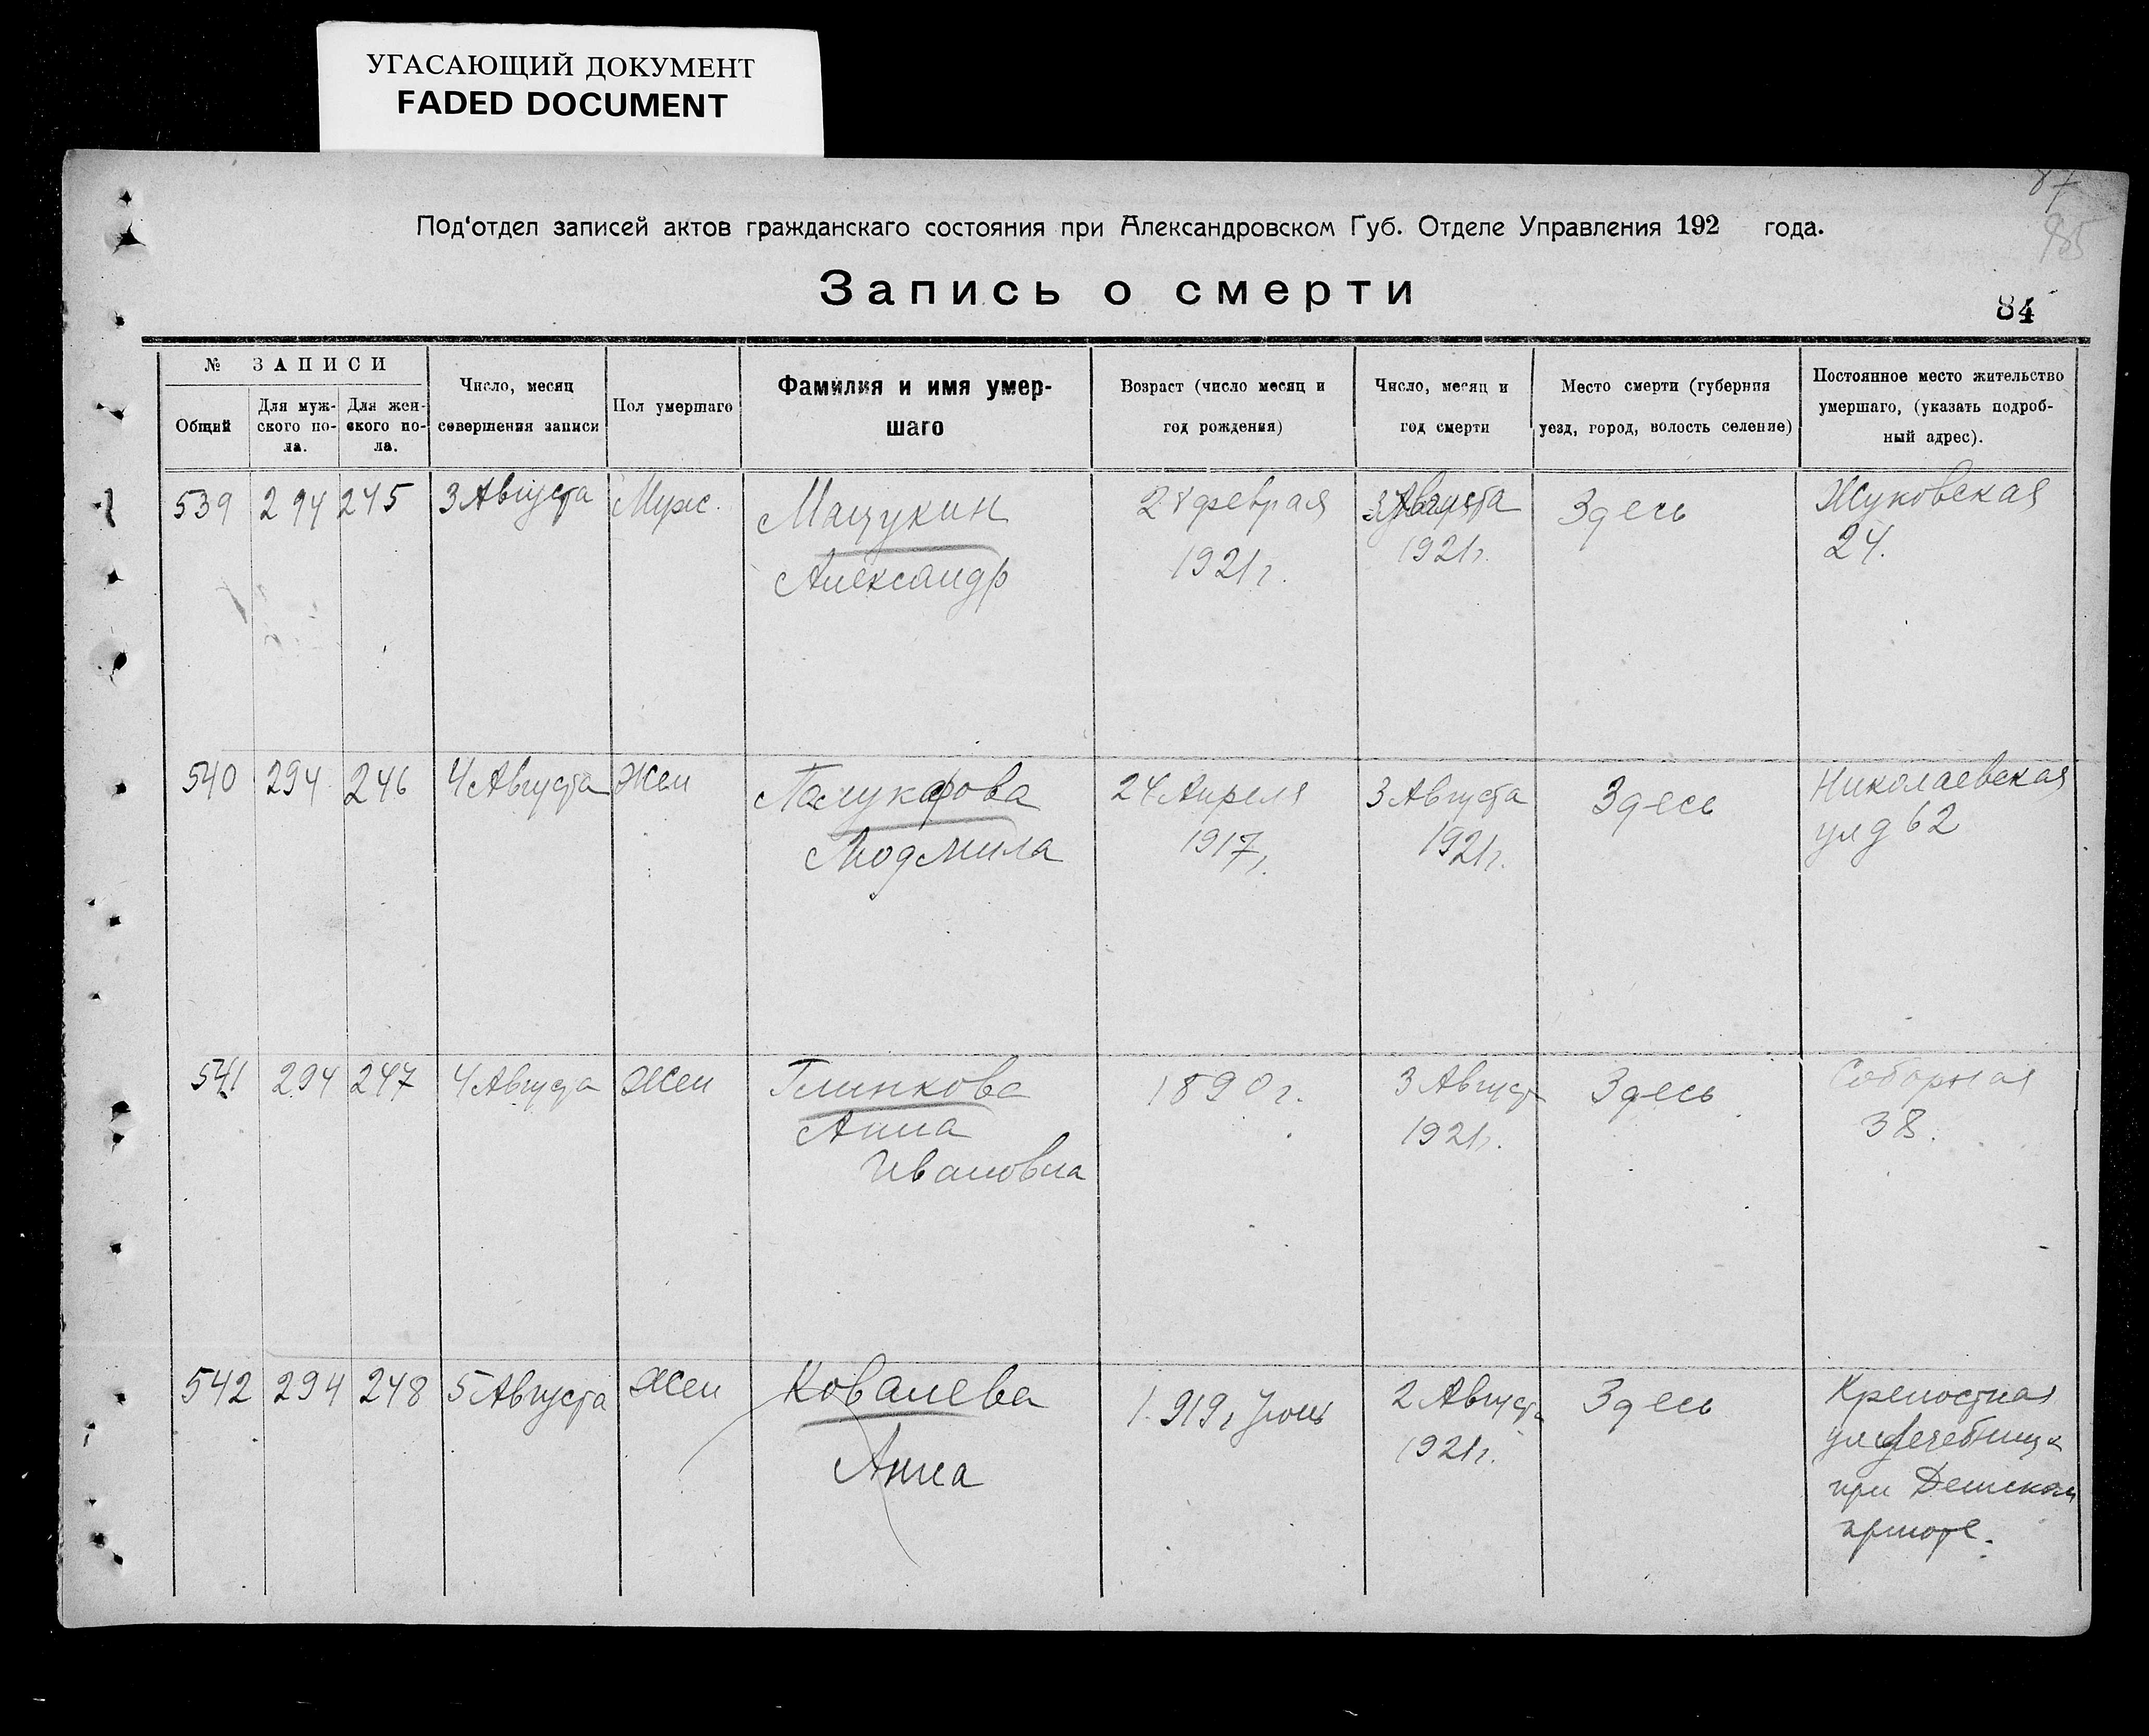 УГАСАЮЩИЙ ДОКУМЕНТ
FADED DOCUMENT
87
Под‘отдел записей актов гражданскаго состояния при Александровском Губ. Отделе Управления 192 года.
85
Запись о смерти
84
№ ЗАПИСИ
Общий
Для муж-
ского по-
ла.
Для жен-
ского по-
ла.
Число, месяц
совершения записи
Пол умершаго
Фамилия и имя умер-
шаго
Возраст (число месяц и
год рождения)
Число, месяц и
год смерти
Место смерти (губерния
уезд, город, волость селение)
Постоянное место жительство
умершаго, (указать подроб-
ный адрес).
539
294
245
3 Августа
Муж.
Мацукин
Александр
28 февраля
1921 г.
3 Августа
1921 г.
Здесь
Жуковская
24.
540
294
246
4 Августа
Жен
Людмила
24 Апреля
1917 г.
3 Августа
1921 г.
Здесь
Николаевская
ул д 62
541
294
247
4 Августа
Жен
Глинкова
Анна
Ивановна
1890 г.
3 Август
1921 г.
Здесь
Соборная
38.
542
294
248
5 Августа
Жен
Ковалева
Анна
1919 г
2 Августа
1921 г.
Здесь
Крепостная
ул лечебница
при Детском